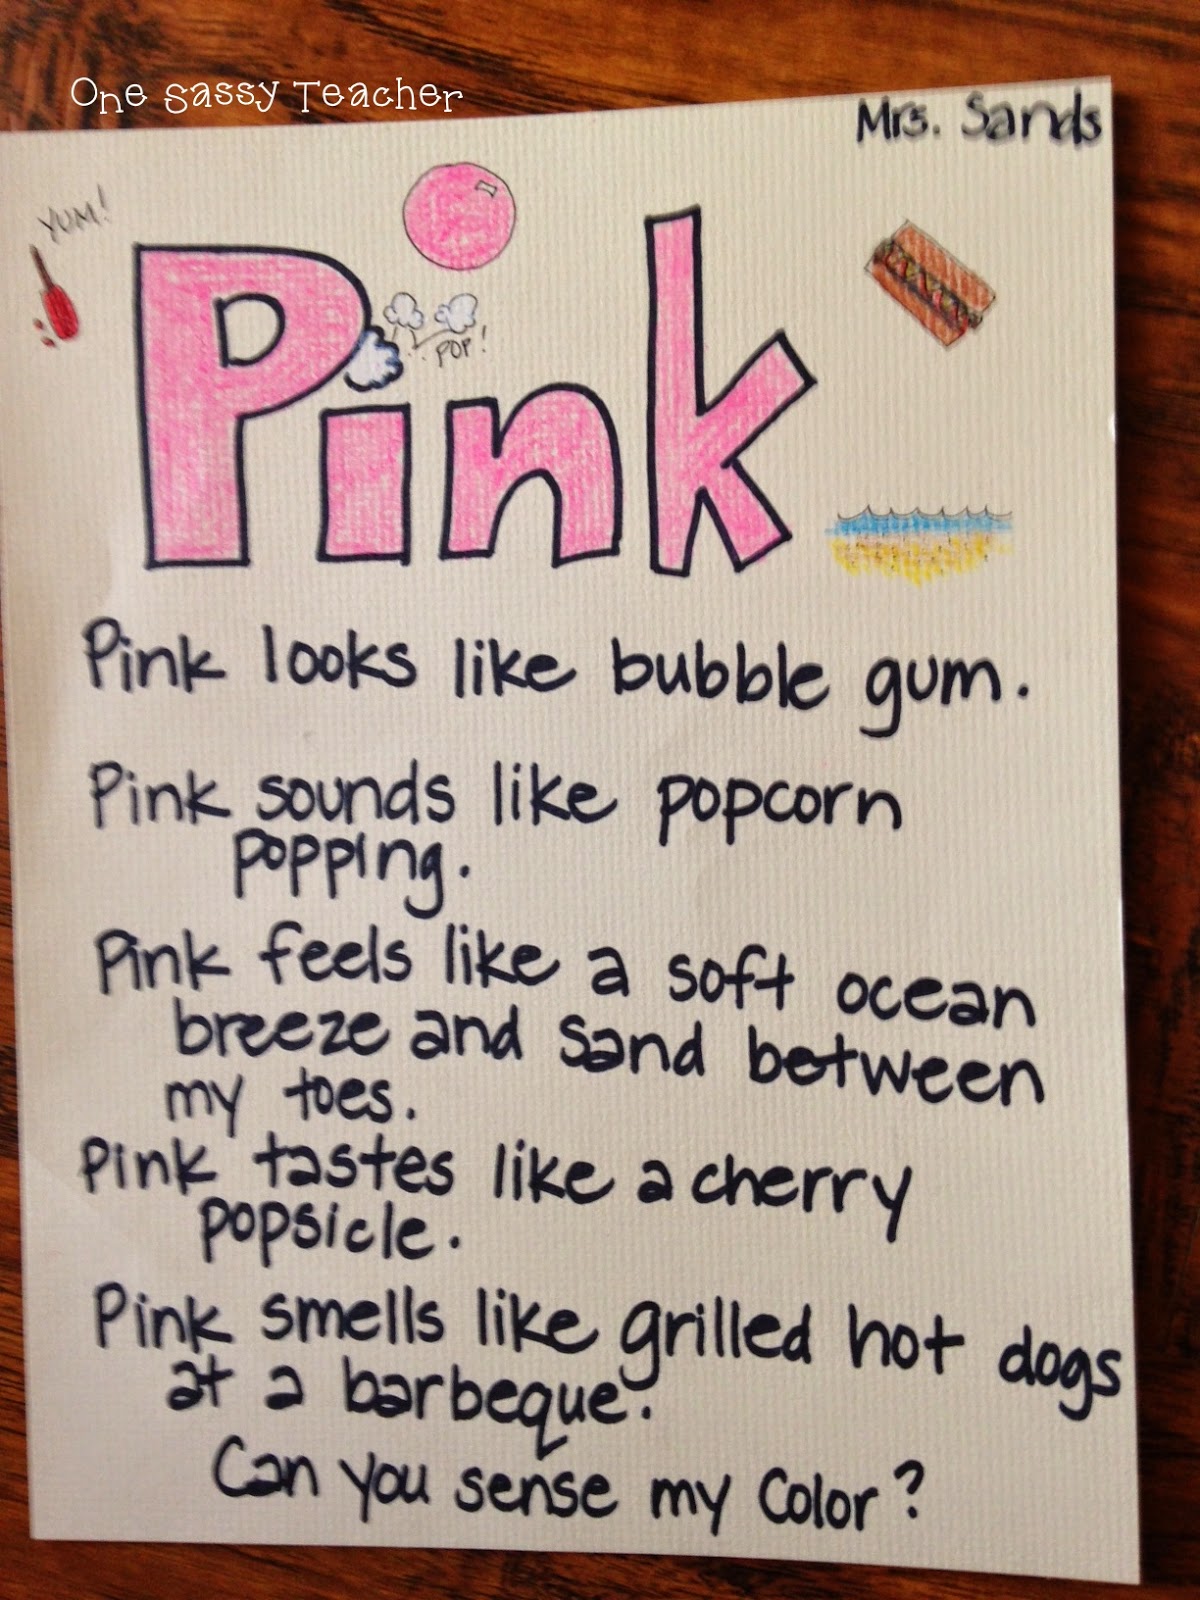 One Sassy Teacher
Mrs. Sands
YUM!
POP!
Pink
Pink looks like bubble gum.
Pink sounds like popcorn
popping.
Pink feels like a soft ocean
breeze and sand between
my toes.
Pink tastes like a cherry
popsicle.
Pink smells like grilled hot dogs
at a barbeque.
Can you sense my Color?